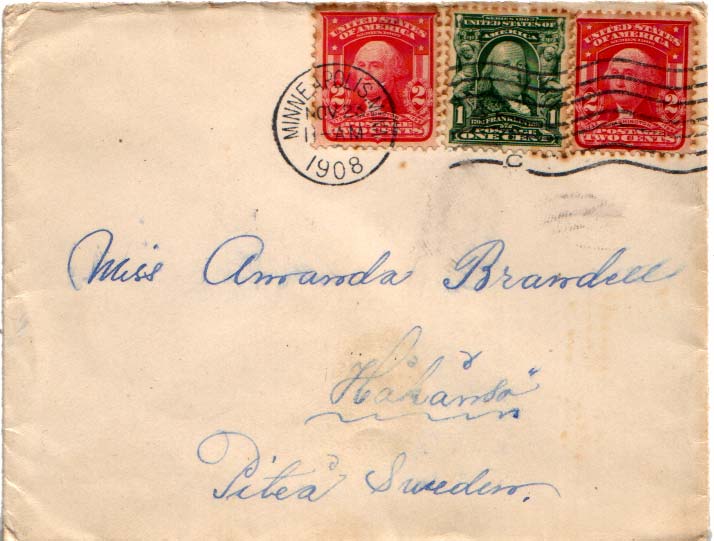 UNITED STATES OF AMERICA
2 2
POSTAGE
SERIES 1902
UNITED STATES OF AMERICA
1 1
FRANKLIN
POSTAGE
ONE CENT
UNITED STATES OF AMERICA
SERIES 1902
2 2
POSTAGE
TWO CENTS
MINNEAPOLIS, M
NOV
11 AM
1908
C
Miss Amanda Brandell
Håkånsö
Piteå Sweden.